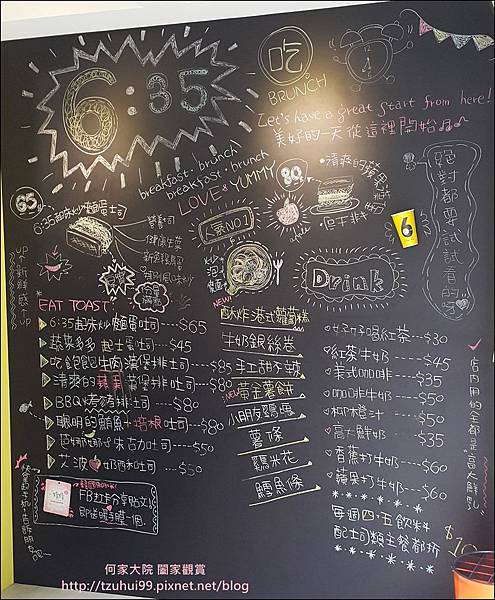 6:35
吃
BRUNCH
Let's have a great start from here!
美好的一天從這裡開始
breakfast・brunch
breakfast・brunch
LOVE & YUMMY
65
80
6
絕對都要試試看的
人氣NO1
泡麵
營養司
Drink
UP↑新鮮感↑UP
EAT TOAST
6:35起床炒麵蛋吐司---$65
蔬菜多多 起士蛋吐司---$45
吃飽飽牛肉漢堡排吐司---$85
清爽的蘋果漢堡排吐司---$80
BBQ烤烤排吐司---$80
聰明的鮪魚+培根吐司---$80
芭娜娜朱古力吐司---$50
艾波 奶酥吐司---$50
FB打卡分享貼文
即送 一個.
NEW
酥炸港式蘿蔔糕
牛奶銀絲卷
手工甜不辣
NEW
黃金薯餅
小朋友雞塊
薯條
雞米花
鱈魚條
好好喝紅茶---$30
紅茶牛奶---$45
美式咖啡---$35
咖啡牛奶---$50
柳橙汁---$50
高大鮮奶---$35
香蕉打牛奶---$60
蘋果打牛奶---$60
每個四.五飲料
配吐司類主餐都折
$10
店內用的全都是高大鮮乳
何家大院 闔家觀賞
http://tzuhui99.pixnet.net/blog